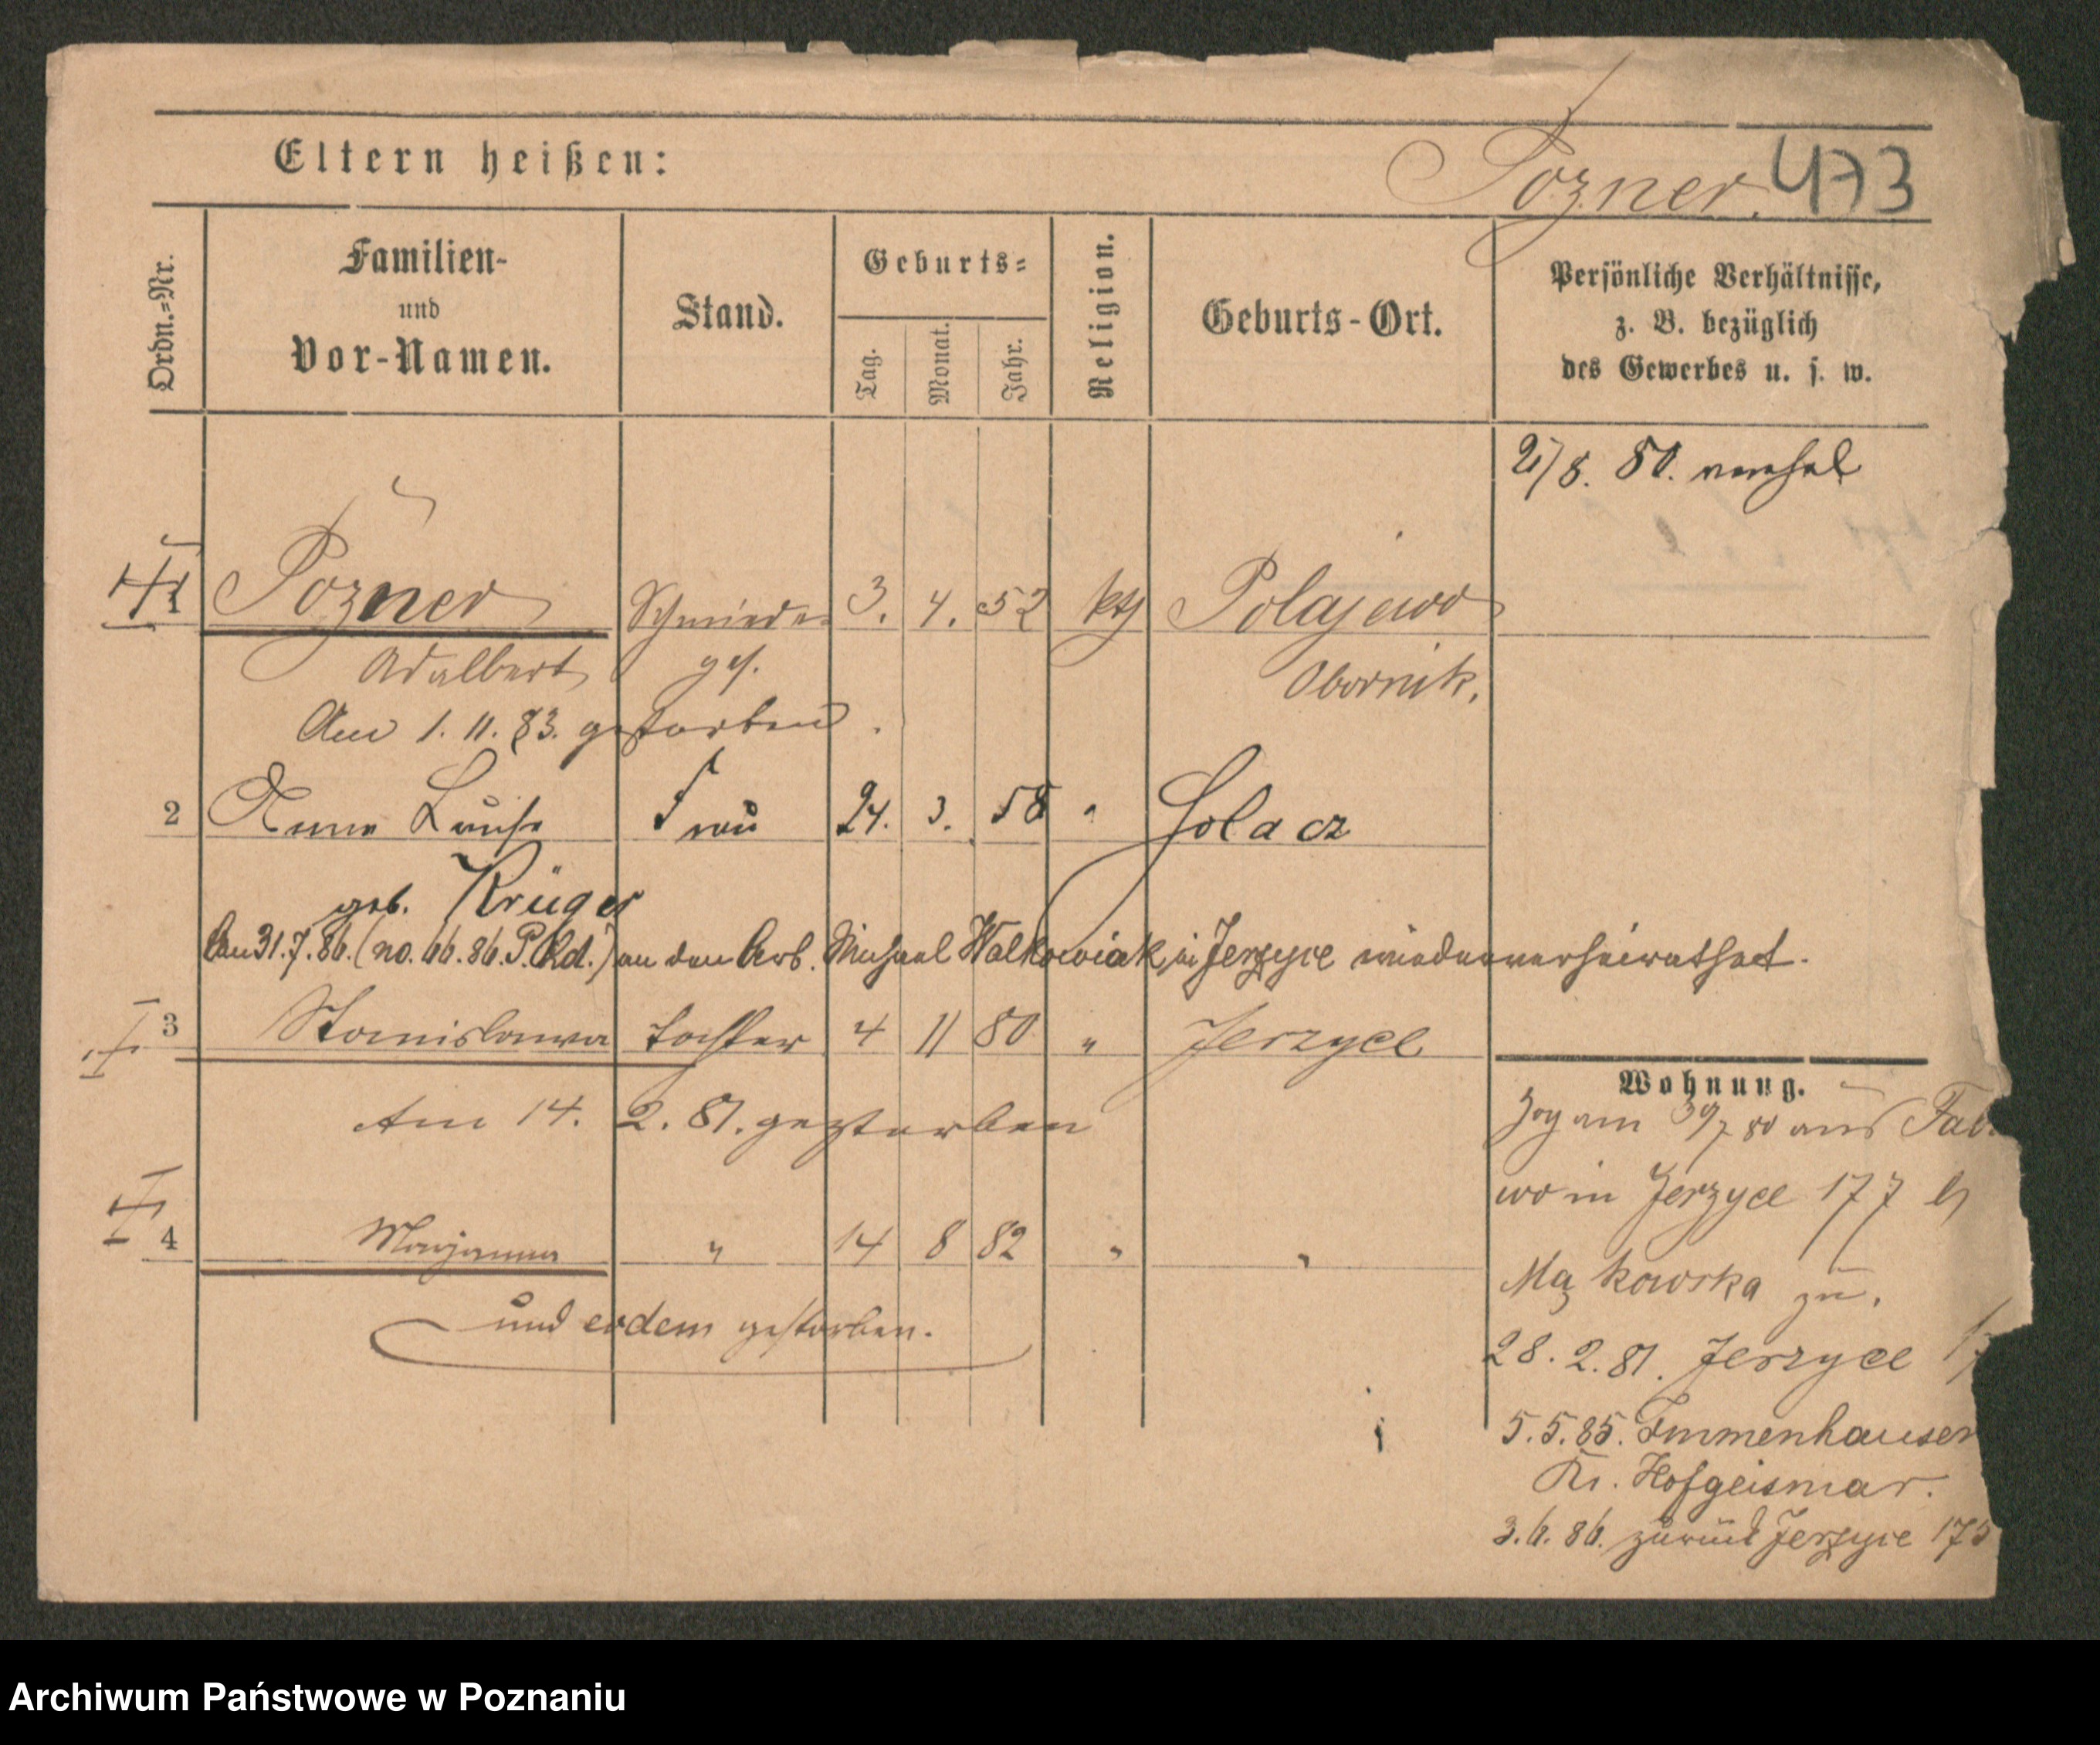 Eltern heißen:
Pozner. 473
Ordn.=Nr.
Familien- und Vor-Namen.
Stand.
Geburts=
Tag.
Monat.
Jahr.
Religion.
Geburts-Ort.
Persönliche Verhältnisse,
z. B. bezüglich
des Gewerbes u. s. w.
80. verehel
Pozner Schmiede 3. 4. 52 kth Polajewo
Adalbert ges. Obornik.
Am 1. 11. 83. gestorben.
2 Anna Luise Frau 24. 3. 58 " Solacz
geb. Krüger
Am 31.7.86. (no. 66.86. P. Rd.) an den Arb. Michael Walkowiak in Jerzyce wiederverheirathet.
3 Stanislawa Tochter 4 11 80 " Jerzyce
Am 14. 2. 81. gestorben
4 Marjanna " 14 8 82 " "
und eodem gestorben.
Wohnung.
Zog am 80 aus
wo in Jerzyce 177
Mazkowska zu.
28. 2. 81. Jerzyce
5. 5. 85. Immenhausen
Kr. Hofgeismar.
3. 6. 86. zurück Jerzyce 175
Archiwum Państwowe w Poznaniu